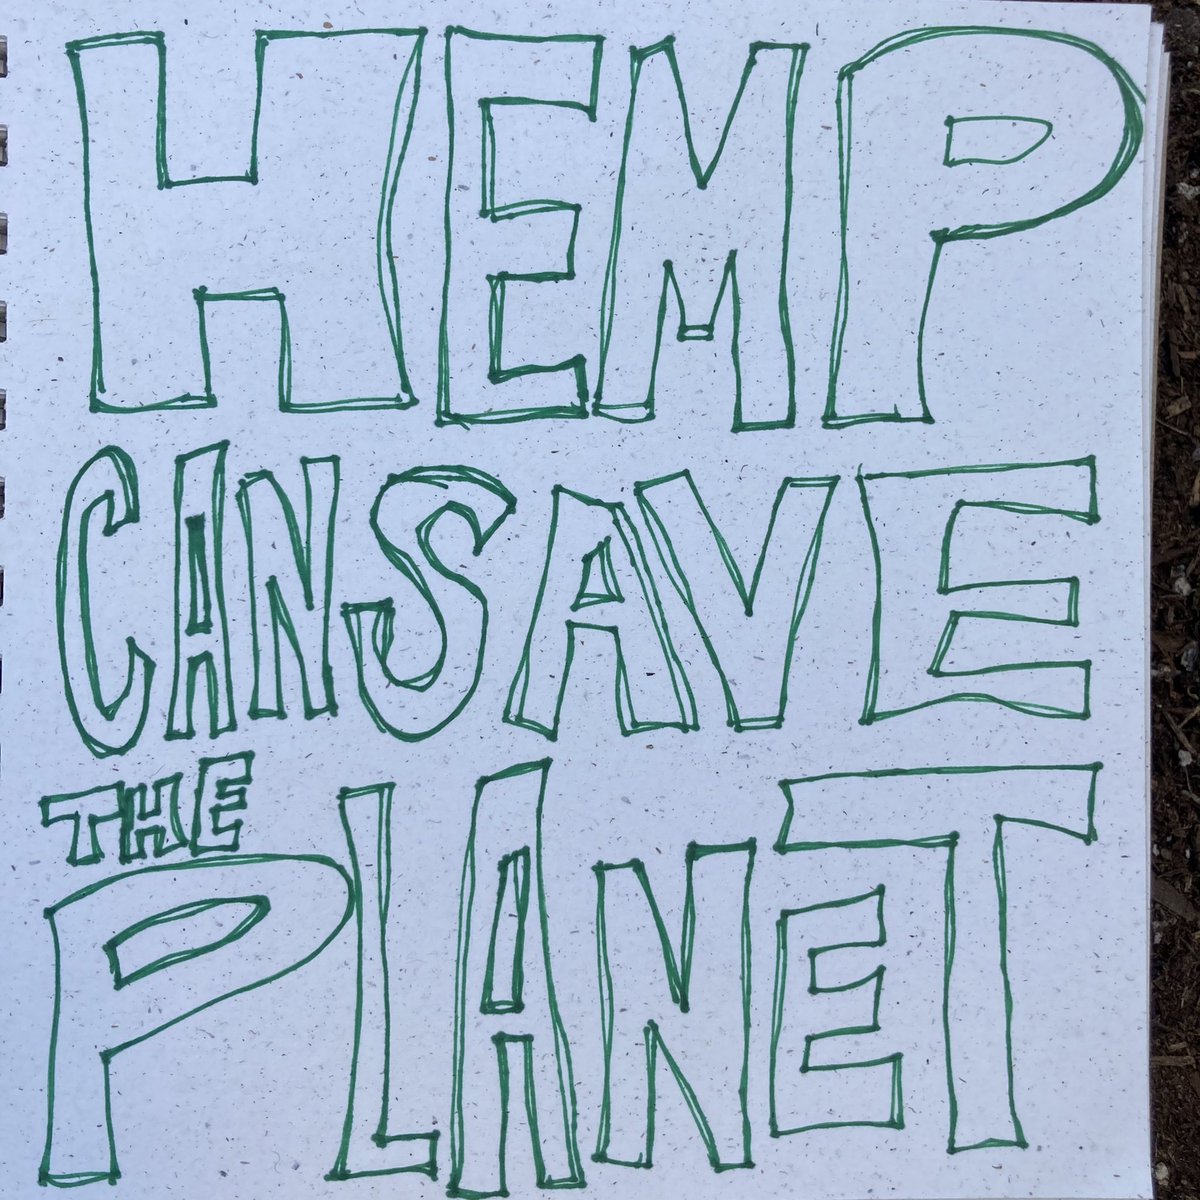 HEMP
CAN SAVE
THE
PLANET